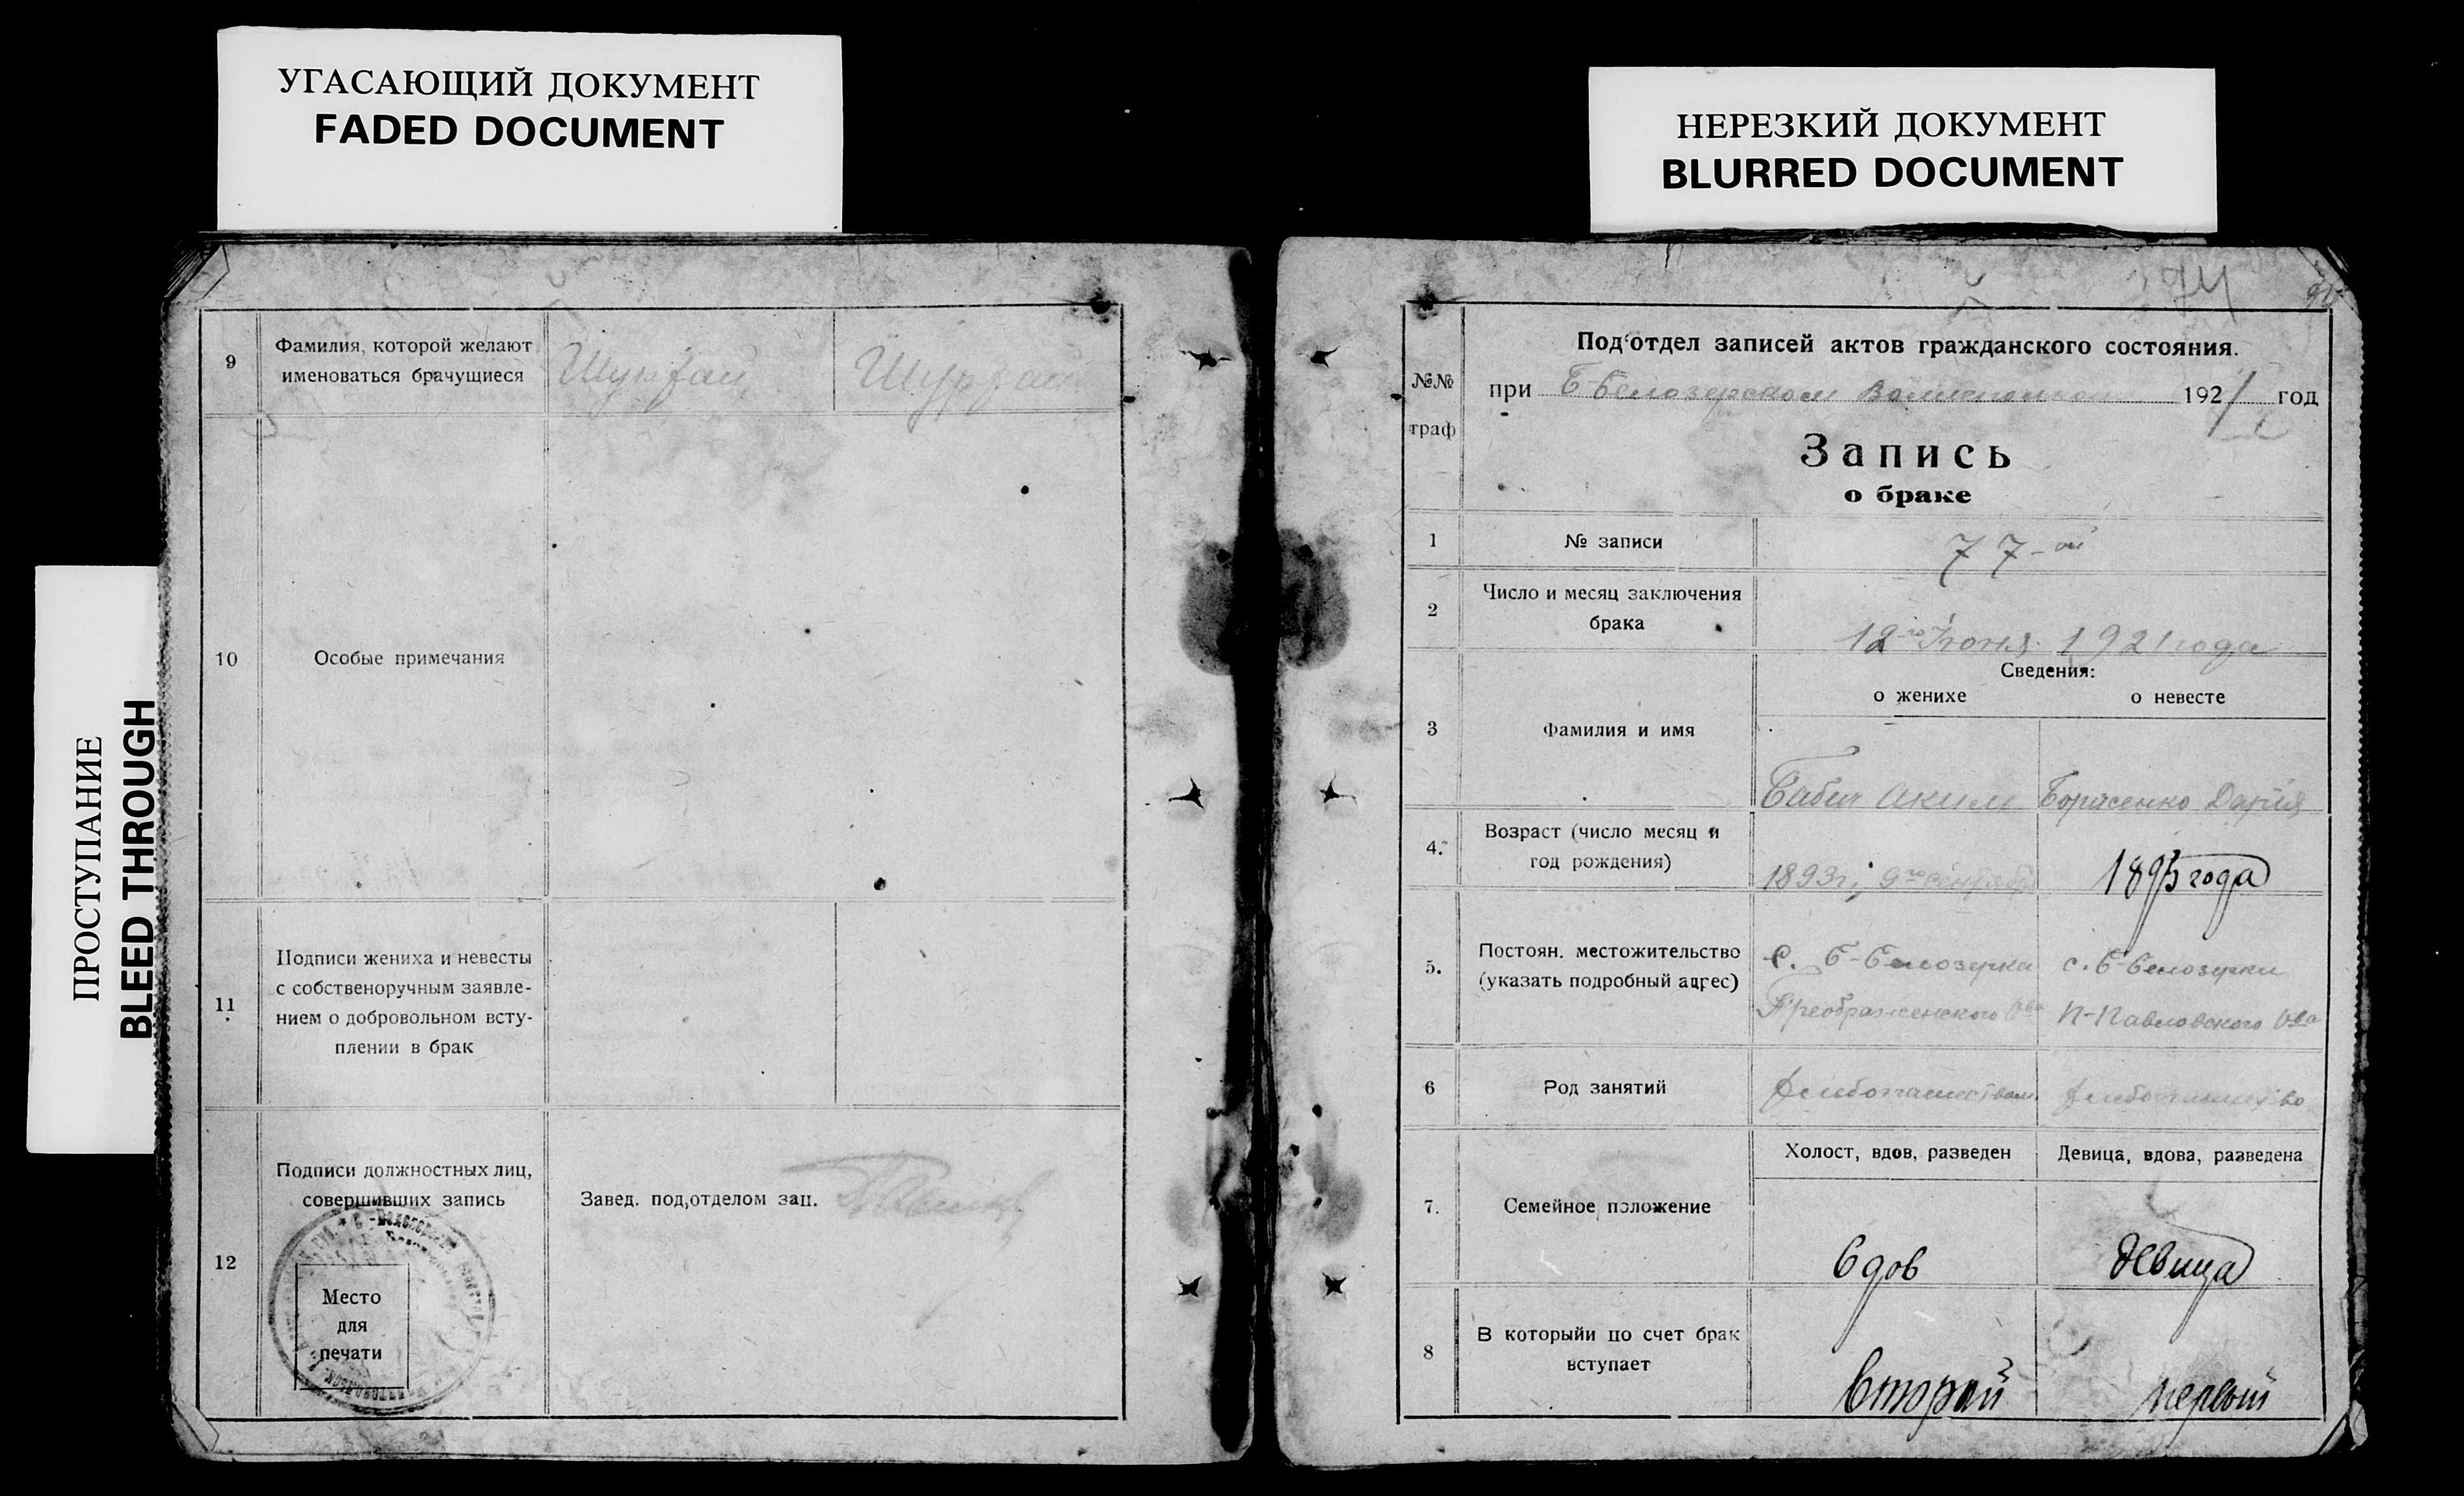 УГАСАЮЩИЙ ДОКУМЕНТ
FADED DOCUMENT
НЕРЕЗКИЙ ДОКУМЕНТ
BLURRED DOCUMENT
ПРОСТУПАНИЕ
BLEED THROUGH
9
Фамилия, которой желают
именоваться брачущиеся
10
Особые примечания
11
Подписи жениха и невесты
с собственоручным заявле-
нием о добровольном всту-
плении в брак
12
Подписи должностных лиц,
совершивших запись
Завед. под,отделом зап.
Место
для
печати
74
№№
граф
Под'отдел записей актов гражданского состояния.
при Б-Белозерском 1921 год
Запись
о браке
1
№ записи
77-ой
2
Число и месяц заключения
брака
12-го Июня 1921 года
3
Фамилия и имя
Сведения:
о женихе
о невесте
Бабич Аким
Борисенко Дария
4.
Возраст (число месяц и
год рождения)
1893 г. 9го сентября
1895 года
5.
Постоян. местожительство
(указать подробный адрес)
с. Б-Белозерка
Преображенского Ова
с. Б-Белозерки
П-Павловского Ова
6
Род занятий
Хлебопашеством
Хлебопашество
7.
Семейное положение
Холост, вдов, разведен
Девица, вдова, разведена
вдов
девица
8
В которыйи по счет брак
вступает
второй
первый